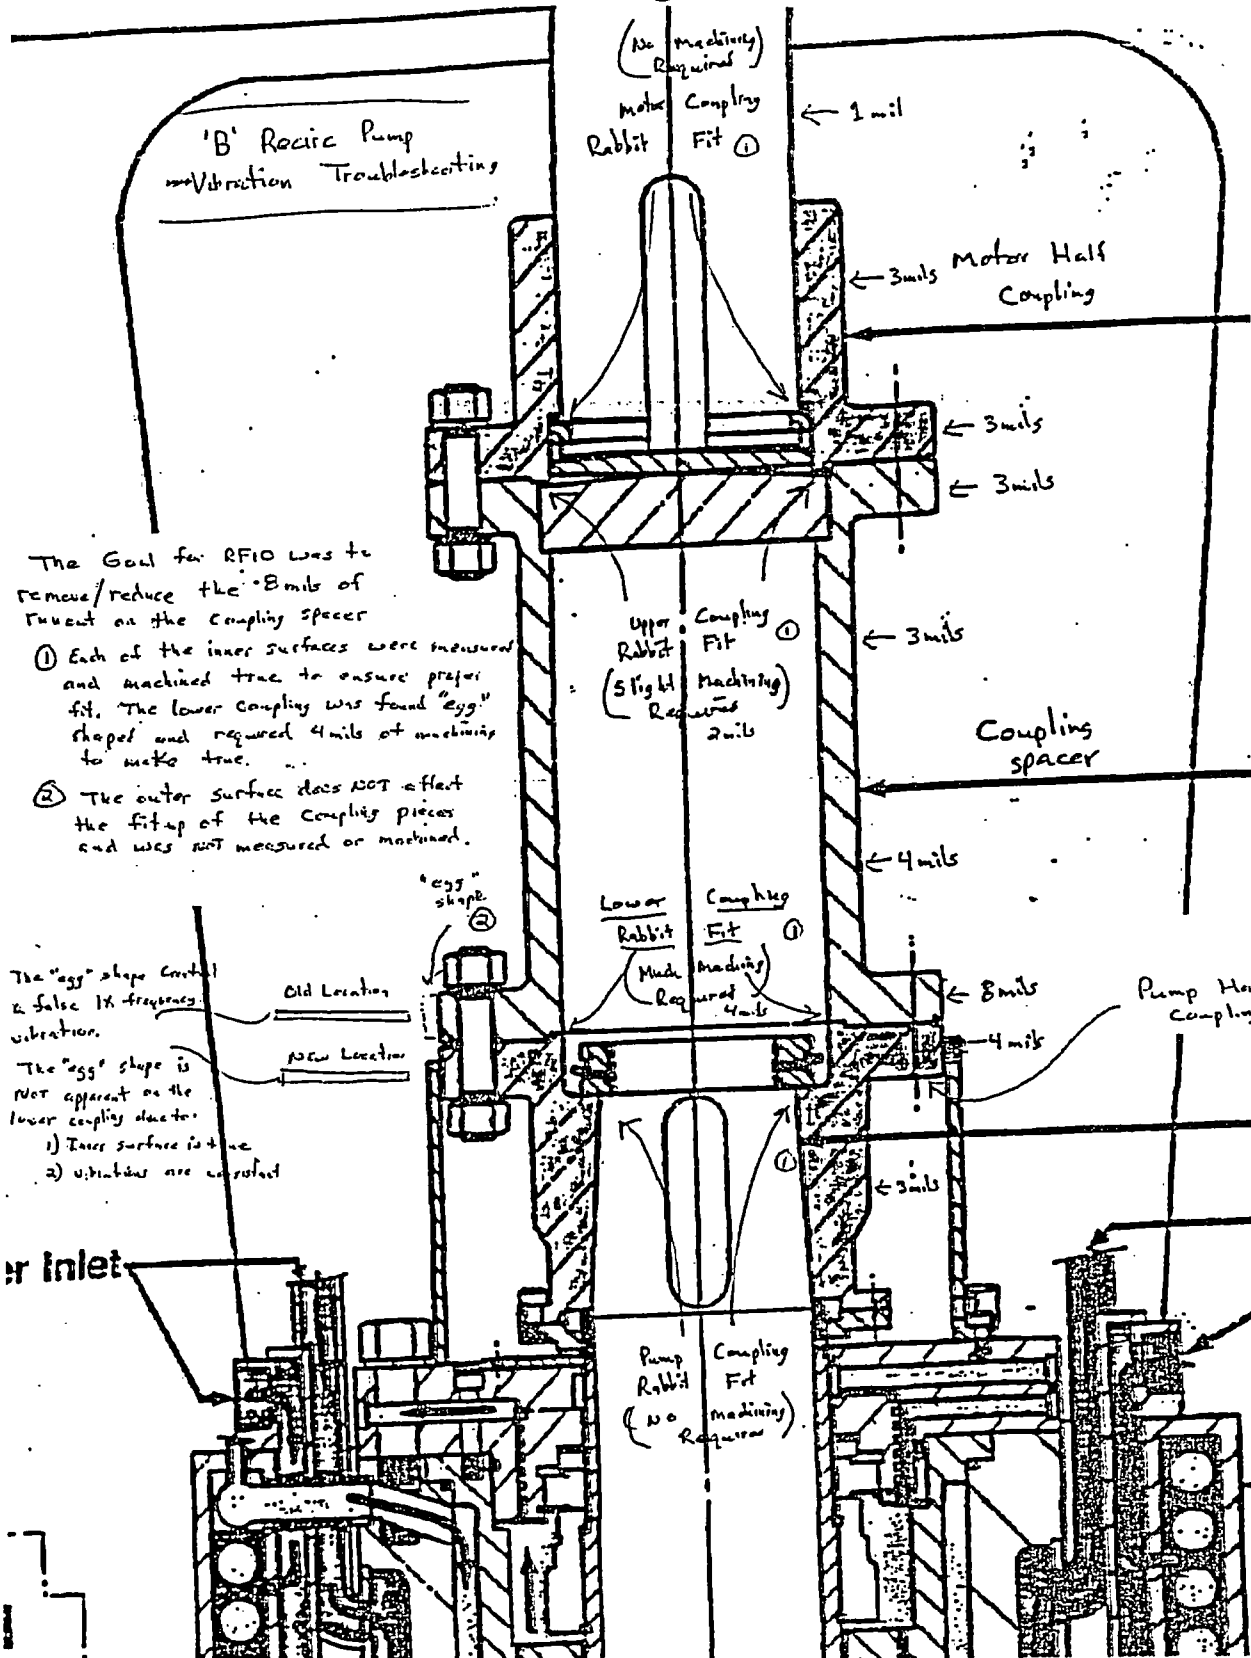 (No Machining)
Required
Motor Coupling
Rabbit Fit ①
← 1 mil
'B' Recirc Pump
Vibration Troubleshooting
← 3mils
Motor Half
Coupling
← 3mils
← 3mils
The Goal for RF10 was to
remove/reduce the 8 mils of
runout on the coupling spacer
① Each of the inner surfaces were measured
and machined true to ensure proper
fit. The lower coupling was found "egg"
shaped and required 4 mils of machining
to make true.
② The outer surface does NOT affect
the fitup of the coupling pieces
and was NOT measured or machined.
Upper Coupling ①
Rabbit Fit
(Slight Machining)
Required
2mils
← 3mils
Coupling
spacer
← 4mils
"egg"
shape
②
Lower Coupling
Rabbit Fit ①
(Much Machining)
Required
4mils
← 8mils
← 4mils
Pump
Coupling
The "egg" shape
a false 1X frequency
vibration.
Old Location
New Location
The "egg" shape is
NOT apparent on the
lower coupling due to:
1) Inner surface is true
2) vibrations are consistent
①
← 3mils
er Inlet
Pump Coupling
Rabbit Fit
(No Machining)
Required